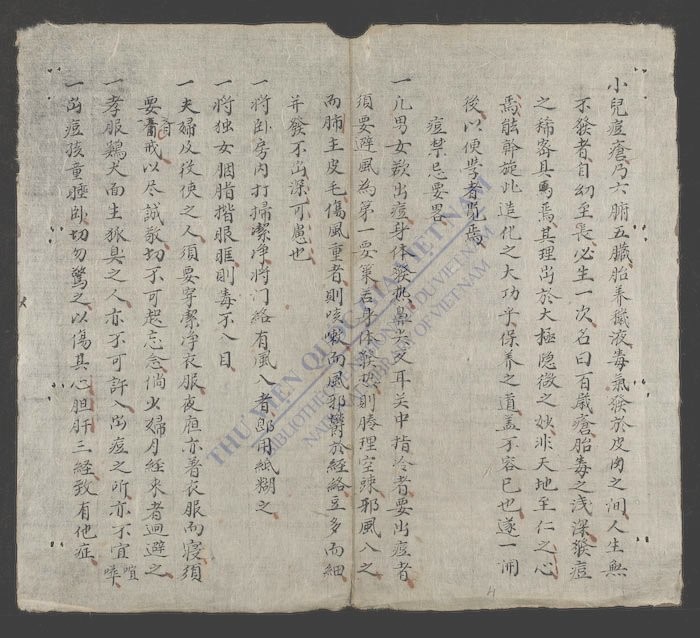 小兒痘瘡乃六腑五臟胎养穢液毒氣發於皮肉之间人生無
不發者自幼至長必生一次名曰百歲瘡胎毒之浅深發痘
之稀密具焉其理出於大極隐微之妙非天地至仁之心
焉能斡施此造化之大功乎保养之道盖不容已也遂一開
後以便學者覽焉
痘禁忌要畧
一凡男女欲出痘身体發热鼻尖及耳关中指冷者要出痘者
須要避風為第一要業若身体發热則腠理空踈邪風入之
而肺主皮毛傷風重者則咳嗽而風邪欝於經絡豆多而細
并發不出深可慮也
一將卧房内打掃潔净將门絡有風入者即用紙糊之
一將独女胭脂揩眼眶則毒不入目
一夫婦及役使之人須要穿潔净衣服夜卧亦着衣服而寝須
要齋戒以尽誠敬切不可起忘念倘火婦月經来者迴避之
一孝服鷄犬面生狐臭之人亦不可許入出痘之所亦不宜喧嘩
一出痘孩童睡卧切勿驚之以傷其心胆肝三經致有他症
THƯ VIỆN QUỐC GIA VIỆT NAM
BIBLIOTHÈQUE NATIONALE DU VIETNAM
NATIONAL LIBRARY OF VIETNAM